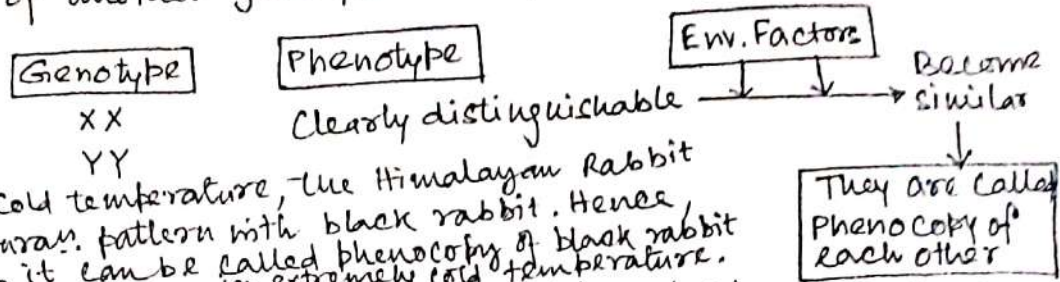 of
Genotype
Phenotype
Env. Factors
XX
YY
Clearly distinguishable
Become
similar
They are called
Phenocopy of
each other
Cold temperature, the Himalayan Rabbit
pattern with black rabbit. Hence,
it can be called phenocopy of black rabbit
extremely cold temperature.